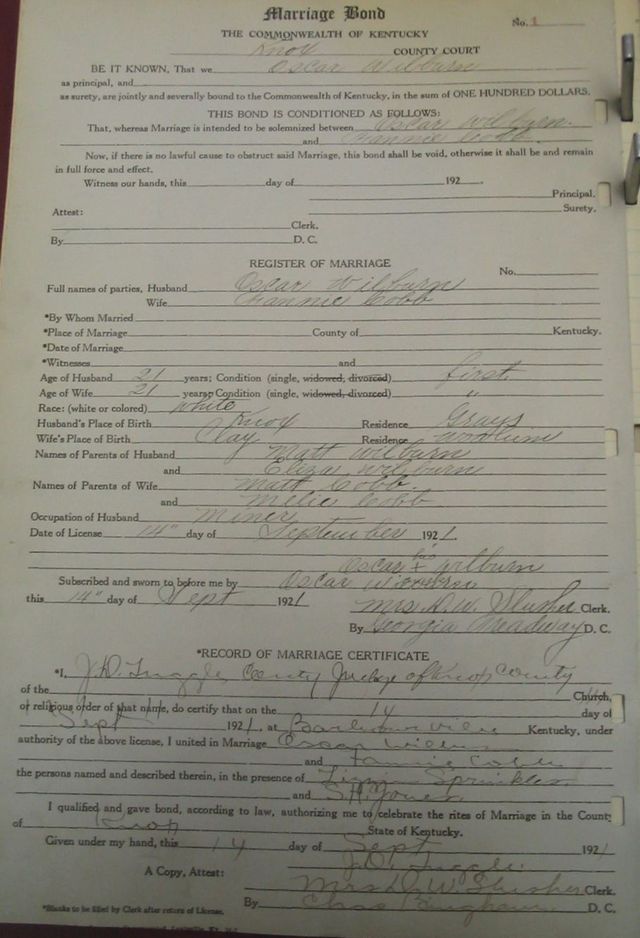 Marriage Bond
No. 1
THE COMMONWEALTH OF KENTUCKY
Knox COUNTY COURT
BE IT KNOWN, That we Oscar Wilburn
as principal, and
as surety, are jointly and severally bound to the Commonwealth of Kentucky, in the sum of ONE HUNDRED DOLLARS.
THIS BOND IS CONDITIONED AS FOLLOWS:
That, whereas Marriage is intended to be solemnized between Oscar Wilburn.
and Fannie Cobb.
Now, if there is no lawful cause to obstruct said Marriage, this bond shall be void, otherwise it shall be and remain
in full force and effect.
Witness our hands, this day of 192 .
Principal.
Attest: Surety.
Clerk.
By D. C.
REGISTER OF MARRIAGE
No.
Full names of parties, Husband Oscar Wilburn
Wife Fannie Cobb
*By Whom Married
*Place of Marriage County of Kentucky.
*Date of Marriage
*Witnesses and
Age of Husband 21 years; Condition (single, widowed, divorced) first.
Age of Wife 21 years; Condition (single, widowed, divorced) "
Race: (white or colored) white
Husband's Place of Birth Knox Residence Grays
Wife's Place of Birth Clay Residence
Names of Parents of Husband Matt Wilburn
and Eliza Wilburn
Names of Parents of Wife Matt Cobb.
and Melie Cobb
Occupation of Husband Miner
Date of License 14" day of September 1921.
his
Oscar x Wilburn
Subscribed and sworn to before me by Oscar Wilburn
this 14" day of Sept 1921 Mrs. D. W. Slusher Clerk.
By Georgia Treadway D. C.
*RECORD OF MARRIAGE CERTIFICATE
*I, J. D. Tuggle County Judge of Knox County
of the Church,
or religious order of that name, do certify that on the 14 day of
Sept 1921, at Barbourville Kentucky, under
authority of the above license, I united in Marriage Oscar Wilburn
and Fannie Cobb
the persons named and described therein, in the presence of Sprinkles
and S. H. Jones
I qualified and gave bond, according to law, authorizing me to celebrate the rites of Marriage in the County
of Knox State of Kentucky.
Given under my hand, this 14 day of Sept 1921
J. D. Tuggle
A Copy, Attest: Mrs D. W. Slusher Clerk.
By Chas Bingham D. C.
*Blanks to be filled by Clerk after return of License.